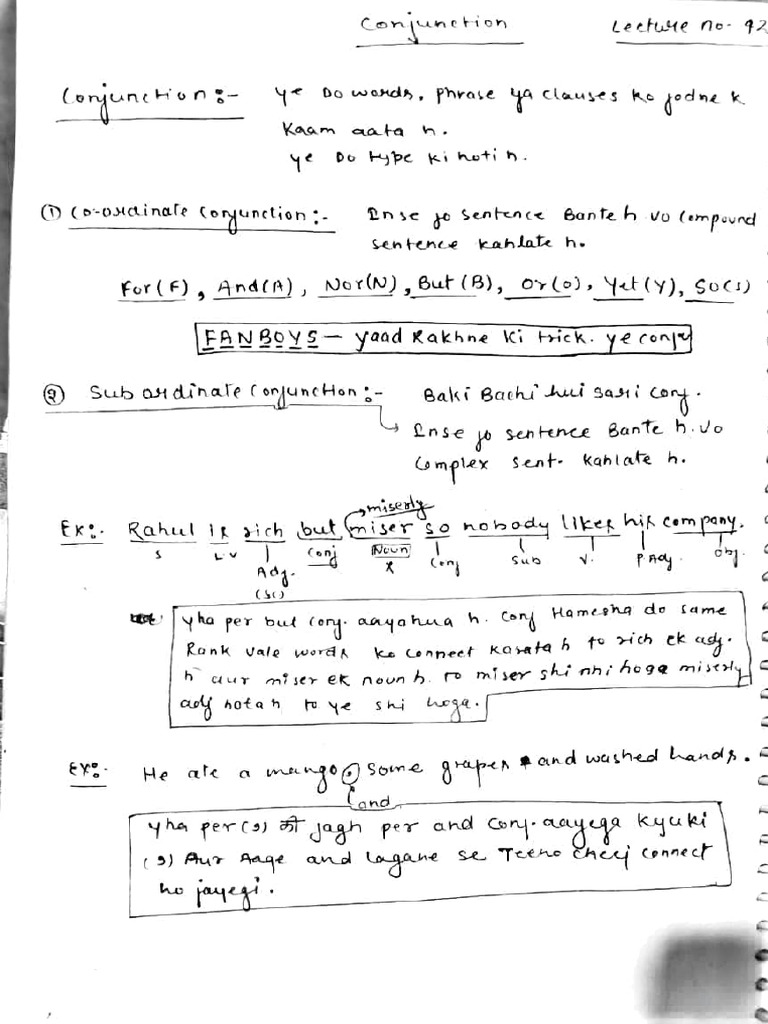 Conjunction Lecture no- 42
Conjunction:- Ye Do words, Phrase ya clauses ko jodne k
Kaam aata h.
Ye Do type ki hoti h.
① Co-ordinate Conjunction:- Inse jo sentence Bante h vo Compound
sentence Kahlate h.
For(F), And(A), Nor(N), But(B), Or(O), Yet(Y), So(S)
FANBOYS - Yaad Rakhne Ki trick. ye conj
② Subordinate Conjunction:- Baki Bachi hui sari conj.
Inse jo sentence Bante h. vo
Complex sent. Kahlate h.
miserly
Ex:- Rahul is rich but miser so nobody likes his company.
S L.V Adj. Conj Noun Conj Sub V. P.Adj. Obj.
(SC) x
Yha per but conj. aaya hua h. Conj Hamesha do same
Rank vale words ko connect karata h to rich ek adj.
h aur miser ek noun h. to miser shi nhi hoga miserly
adj hota h to ye shi hoga.
Ex:- He ate a mango, some grapes and washed hands.
and
Yha per (,) की jagh per and conj. aayega kyuki
(,) Aur Aage and lagane se Teeno cheej connect
ho jayegi.